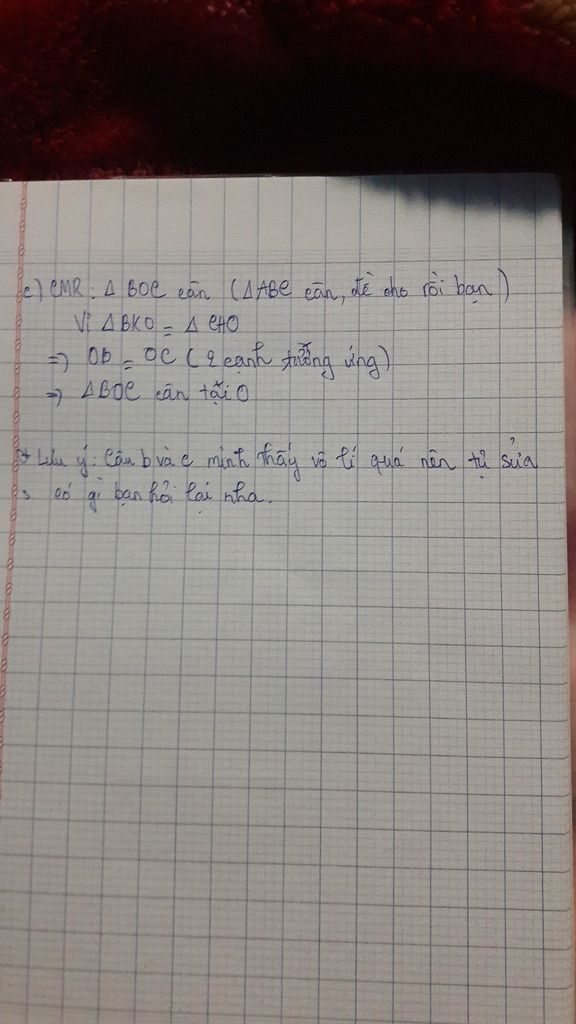 c) CMR: Δ BOC cân (ΔABC cân, đề cho rồi bạn)
Vì ΔBKO = Δ CHO
=> OB = OC (2 cạnh tương ứng)
=> ΔBOC cân tại O
* Lưu ý: Câu b và c mình thấy vô lí quá nên tự sửa
, có gì bạn hỏi lại nha.